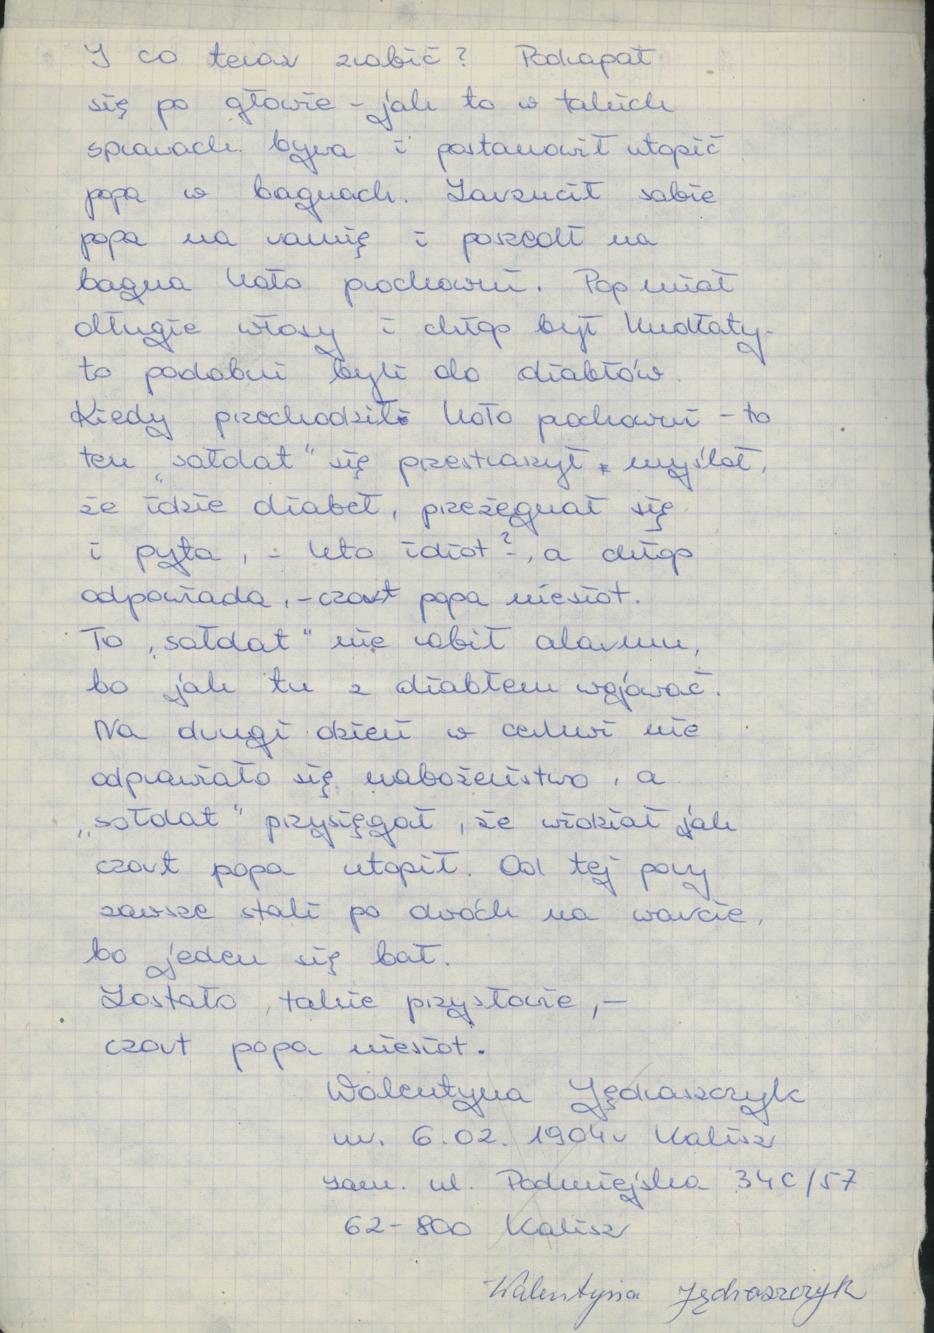 I co teraz zrobić? Podrapał
się po głowie – jak to w takich
sprawach bywa i postanowił utopić
popa w bagnach. Zarzucił sobie
popa na ramię i poszedł na
bagna koło prochowni. Pop miał
długie włosy i chłop był kudłaty –
to podobni byli do diabłów.
Kiedy przechodzili koło prochowni – to
ten „sołdat" się przestraszył, myślał,
że idzie diabeł, przeżegnał się
i pyta, – kto idiot? –, a chłop
odpowiada, – czort popa niesiot.
To „sołdat" nie robił alarmu,
bo jak tu z diabłem wojować.
Na drugi dzień w cerkwi nie
odprawiało się nabożeństwo, a
„sołdat" przysięgał, że widział jak
czort popa utopił. Od tej pory
zawsze stali po dwóch na warcie,
bo jeden się bał.
Zostało takie przysłowie, –
czort popa niesiot.
Walentyna Jędraszczyk
ur. 6.02.1904r Kalisz
zam. ul. Podmiejska 34c/57
62-800 Kalisz
Walentyna Jędraszczyk